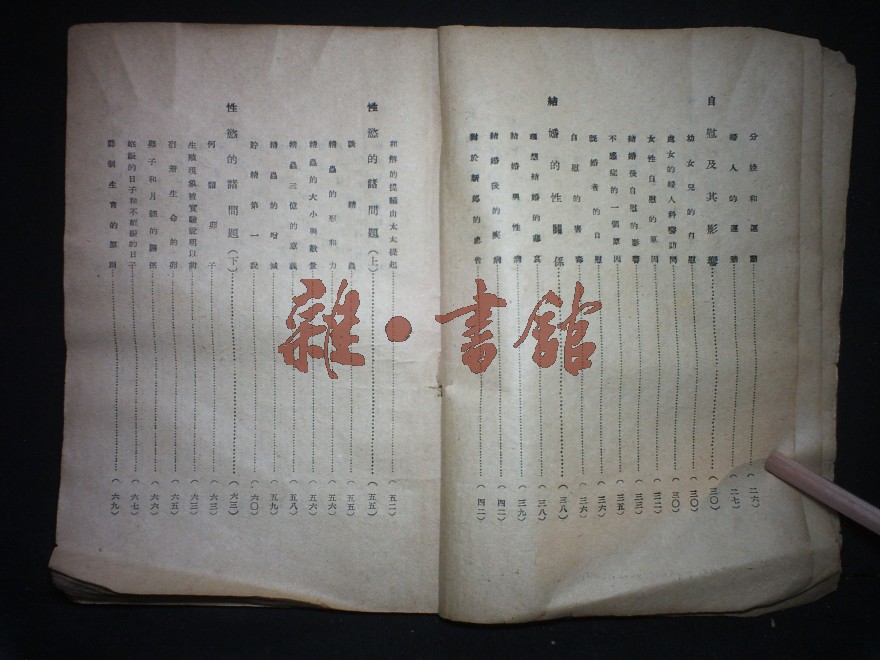 分娩和運動……(二六)
婦人的運動……(二七)
自慰及其影響……(三〇)
幼女兒的自慰……(三〇)
處女的婦人科醫訪問……(三〇)
女性自慰的原因……(三二)
結婚後自慰的影響……(三三)
不感症的一個原因……(三五)
既婚者的自慰……(三六)
自慰的害毒……(三六)
結婚的性關係……(三八)
理想結婚的……(三八)
結婚與性病……(三九)
結婚後的疾病……(四二)
對於新郎的忠告……(四二)
和解的提議由太太提起……(五二)
性慾的諸問題(上)……(五五)
談精蟲……(五五)
精蟲的原和力……(五六)
精蟲的大小與數量……(五六)
精蟲三億的意義……(五八)
精蟲的增減……(五九)
貯精第一說……(六〇)
性慾的諸問題(下)……(六三)
何謂卵子……(六三)
生殖現象被實驗證明以前……(六三)
宿着生命的卵……(六五)
卵子和月經的關係……(六六)
妊娠的日子和不妊娠的日子……(六七)
節制生育的原則……(六九)
雜·書館